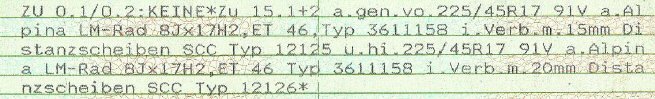 ZU 0.1/0.2:KEINE*Zu 15.1+2 a.gen.vo.225/45R17 91V a.Al
pina LM-Rad 8Jx17H2,ET 46,Typ 3611158 i.Verb.m.15mm Di
stanzscheiben SCC Typ 12125 u.hi.225/45R17 91V a.Alpin
a LM-Rad 8Jx17H2,ET 46 Typ 3611158 i.Verb.m.20mm Dista
nzscheiben SCC Typ 12126*